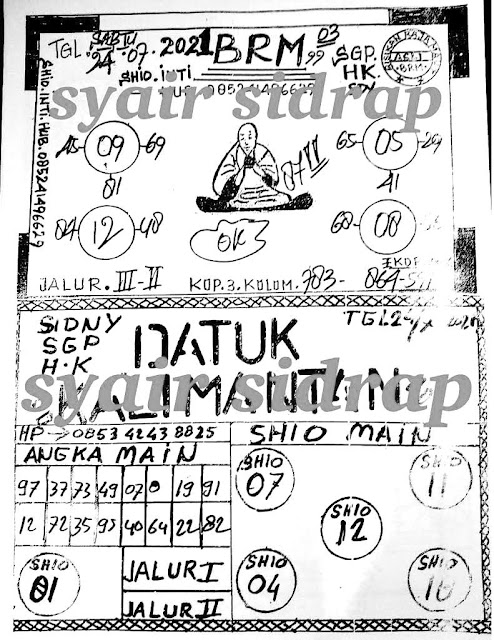 TGL. SABTU 24.07.2021 BRM 03 99
SHIO.INTI SGP. HK. SDY
HUB. 085241496629
ASLI BRM
SHIO.INTI.HUB.085241496629
syair sidrap
09 69 65 05
01 41
04 12 48 60 08
87 VII
OK
JALUR. III-II KOP.3.KOLOM. 703-
SIDNY
SGP
H.K
TGL 24
DATUK
KALIMANTAN
syair sidrap
HP → 0853 4243 8825
SHIO MAIN
ANGKA MAIN
97 37 73 49 07 19 91
12 72 35 98 40 64 22 82
SHIO 07
SHIO 11
SHIO 12
SHIO 04
SHIO 10
SHIO 01
JALUR I
JALUR II